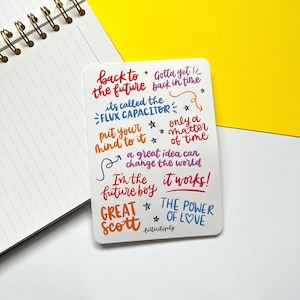 back to
the future
Gotta get
back in time
its called the
FLUX CAPACITOR
put your
mind to it
only a
matter
of time
a great idea can
change the world
I'm the
future boy
it works!
GREAT
Scott
THE POWER
OF LOVE